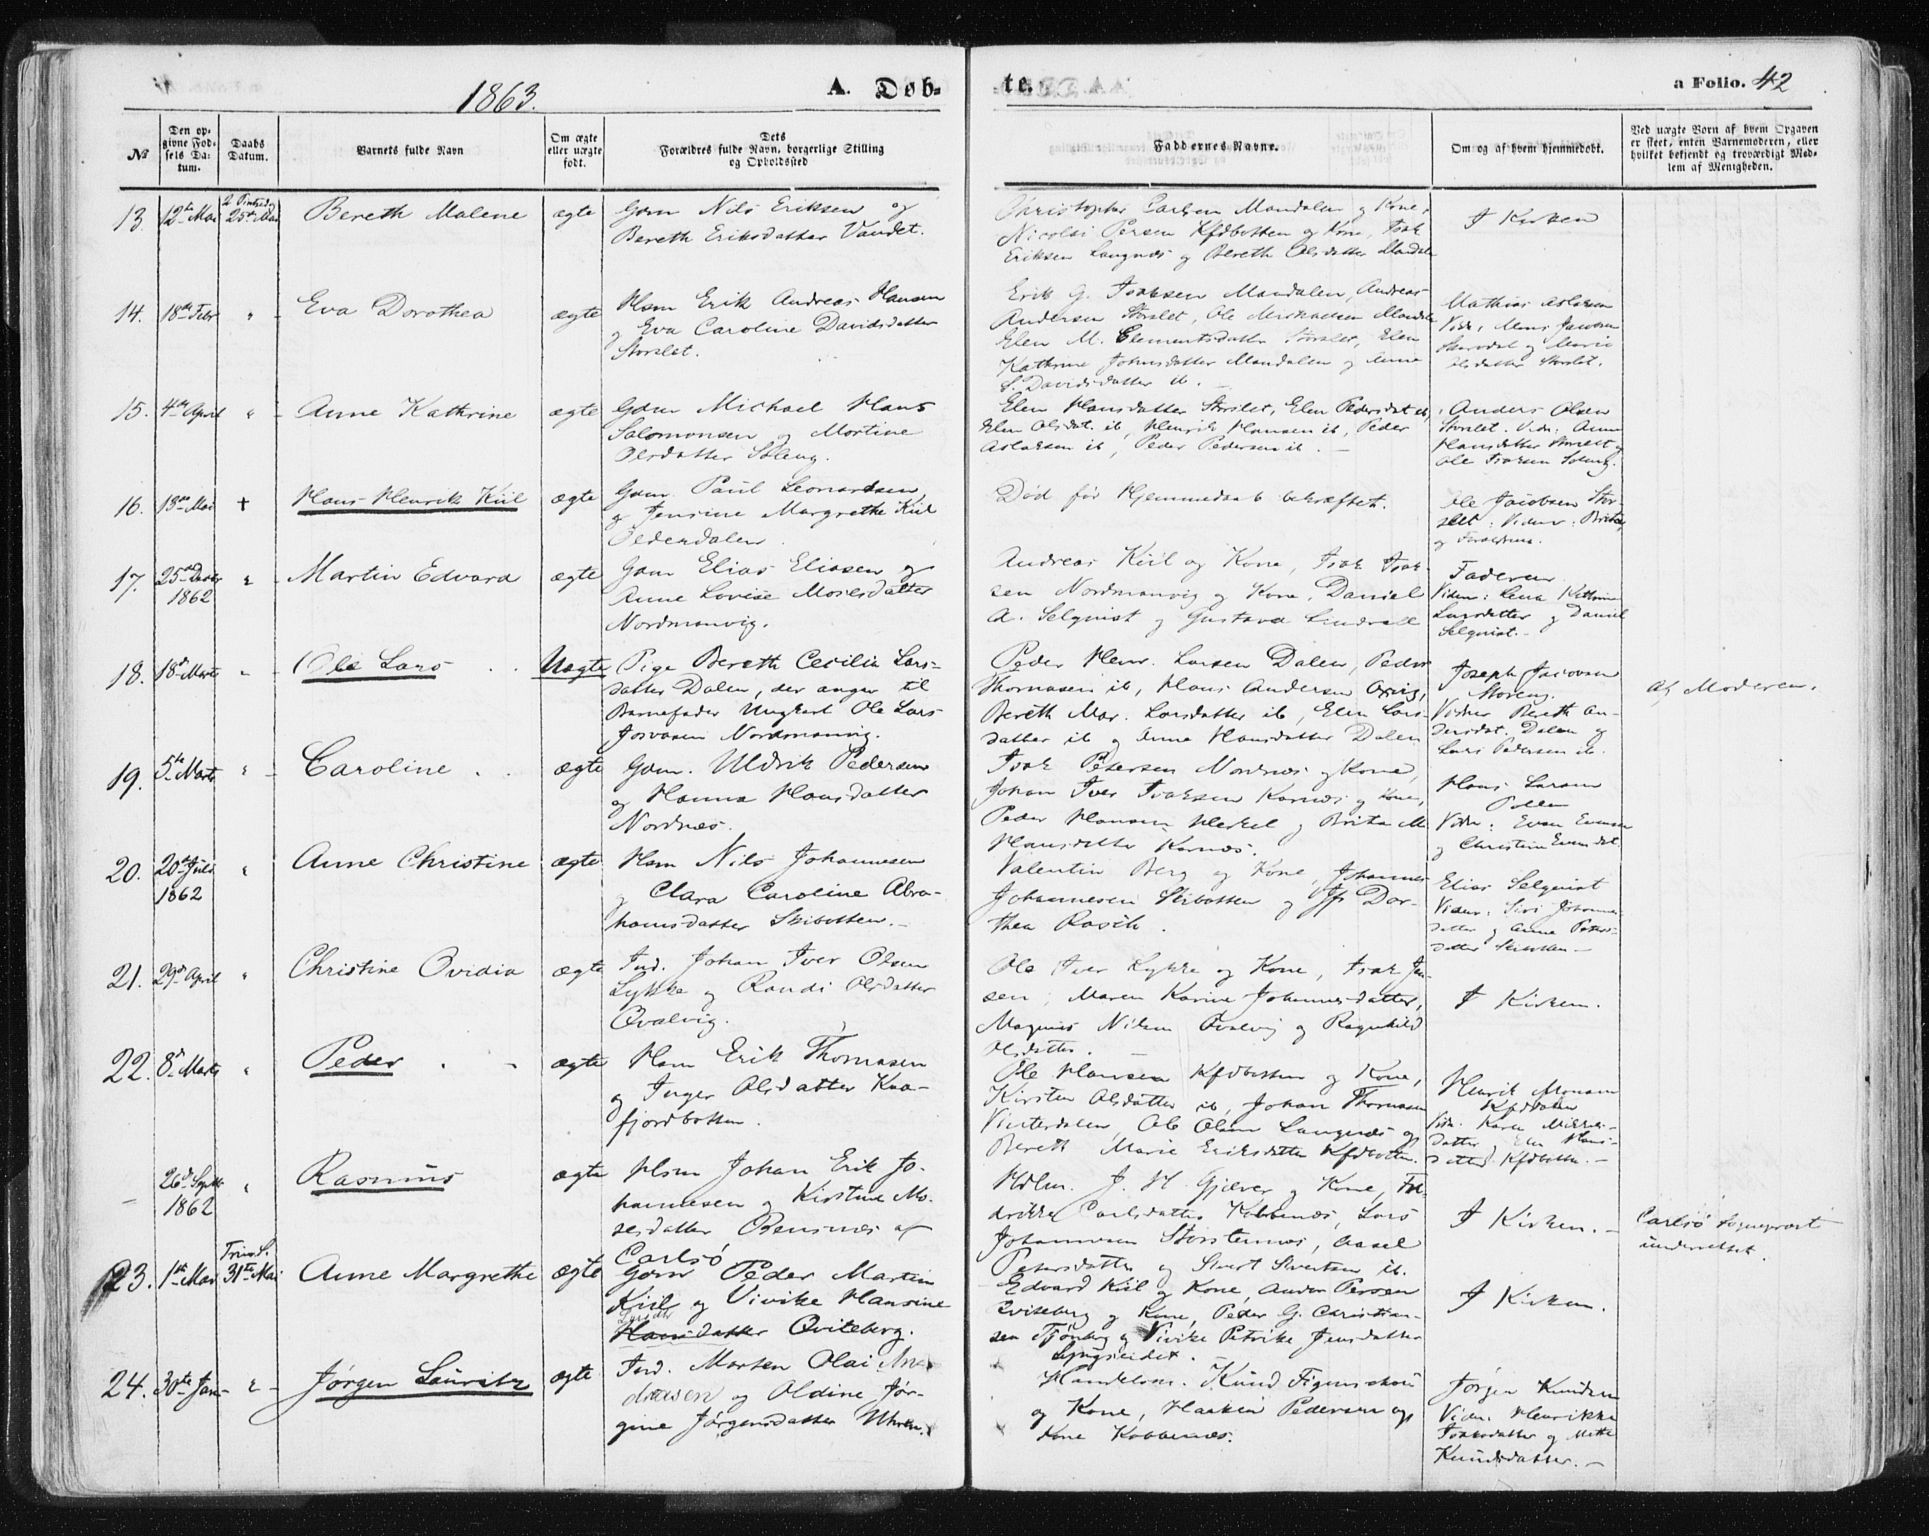 1863.
A. Døb-
te.
a Folio. 42
№
Den op-
givne Fød-
sels Da-
tum.
Daabs
Datum.
Barnets fulde Navn
Om ægte
eller uægte
født.
Dets
Forældres fulde Navn, borgerlige Stilling
og Opholdssted
Faddernes Navne.
Om og af hvem hjemmedøbt.
Ved uægte Børn af hvem Opgaven
er skeet, enten Barnemoderen, eller
hvilket bekjendt og troværdigt Med-
lem af Menigheden.
13. 12te Mai 25de Mai Bereth Malene ægte
Gbm Nils Eriksen og
Bereth Eriksdatter Vandet.
Christopher Carlsen Mandalen og Kone,
Nicolai Persen Kfdbotten og Kone, Isak
Eriksen Langnæs og Bereth Olsdatter Mandalen
I Kirken
14. 18de Febr " Eva Dorothea ægte
Hsm Erik Andreas Hansen
og Eva Caroline Davidsdatter
Storslet.
Erik G. Isaksen Mandalen, Andreas
Andersen Storslet, Ole Mikkelsen Mandalen
Elen M. Clementsdatter Storslet, Elen
Kathrine Johnsdatter Mandalen og Anne
S. Davidsdatter ib.
Mathias Aslaksen
Vidn: Mons Jacobsen
og Marie
Olsdatter Storslet.
15. 4de April " Anne Kathrine ægte
Gbm Michael Hans
Salomonsen og Mortine
Olsdatter Soleng.
Elen Hansdatter Storslet, Elen Pedersdat ib,
Elen Olsdt. ib, Henrik Hansen ib, Peder
Aslaksen ib, Peder Pedersen ib.
Anders Olsen
Storslet. Vidn: Anne
Hansdatter Storslet og
Ole Isaksen Soleng.
16. 13de Mai † Hans Henrik Kiil ægte
Gbm. Paul Leonardsen
og Jensine Margrethe Kiil
Olderdalen.
Død før Hjemmedaab bekræftet.
Ole Jacobsen Stor-
slet: Vidner:
og Forældrene.
17. 25de Decbr 1862 " Martin Edvard ægte
Gbm Elias Eliasen og
Anne Lovise Mosesdatter
Nordmanvig.
Andreas Kiil og Kone, Isak Isak-
sen Nordmanvig og Kone, Daniel
A. Selqvist og Gustava Lindvall
Faderen
Vidn: Lena Kathrine
Larsdatter og Daniel
Selqvist.
18. 18de Marts " Ole Lars Uægte
Pige Bereth Cecilia Lars-
datter Dalen, der angav til
Barnefader Ungkarl Ole Lars
Josvasen Nordmanvig.
Peder Henr. Larsen Dalen, Peder
Thomasen ib, Hans Andersen Oxvig,
Bereth Mar. Larsdatter ib, Elen Lars-
datter ib og Anne Hansdatter Dalen
Joseph Josvasen
Storeng.
Vidner Bereth An-
dersdat. Dalen og
Lars Pedersen ib.
af Moderen.
19. 5te Marts " Caroline ægte
Gbm. Uldrik Pedersen
og Hanna Hansdatter
Nordnæs.
Isak Petersen Nordnæs og Kone,
Johan Iver Isaksen Kornæs og Kone,
Peder Hansen og Brita M
Hansdatter Kornæs.
Hans Larsen
Vidn: Even Evensen
og Christine Evensdat.
20. 20de Juli 1862 " Anne Christine ægte
Hsm Nils Johannesen
og Clara Caroline Abra-
hamsdatter Skibotten.
Valentin Berg og Kone, Johannes
Johannesen Skibotten og Jfr Dor-
thea Rasch.
Elias Selqvist
Vidn: Siri Johannes-
datter og Anne Peters-
datter Skibotten
21. 29de April " Christine Ovidia ægte
Ind. Johan Iver Olsen
Lykke og Randi Olsdatter
Qvalvig.
Ole Iver Lykke og Kone, Isak Jen-
sen, Maren Karine Johannesdatter,
Magnus Nilsen Qvalvig og Ragnhild
Olsdatter.
I Kirken.
22. 8de Marts " Peder ægte
Hsm Erik Thomasen
og Inger Olsdatter Kaa-
fjordbotten.
Ole Hansen Kfdbotten og Kone,
Kirsten Olsdatter ib, Johan Thomasen
Vinterdalen, Ole Olsen Langnæs og
Bereth Marie Eriksdatter Kfdbotten.
Henrik Monsen
Kfdbotten
Vidn. Karen Mikkels-
datter og Elen Hans-
datter Kfdbotten.
26de Septbr 1862 " Rasmus ægte
Hsm Johan Erik Jo-
hannesen og Kirstine Mo-
sesdatter Bensnæs af
Carlsø
Hdlm. J. H. Gjæver og Kone, Fre-
drikke Carlsdatter Kobbenæs, Lars
Johannesen Storstennæs, Aasel
Petersdatter og Sivert Sivertsen ib.
I Kirken.
Carlsø Sogneprest
underrettet.
23. 1ste Mai Trinit. S. 31te Mai Anne Margrethe ægte
Gbm Peder Martin
Kiil og Vivike Hansine
Hansdatter Qviteberg.
Edvard Kiil og Kone, Anders Persen
Qviteberg og Kone, Peder G. Christian-
sen og Vivike Petrikke Jensdatter
Lyngseidet.
I Kirken.
24. 30te Jan " Jørgen Lauritz ægte
Ind. Morten Olai An-
dreasen og Oldine Jør-
gine Jørgensdatter Uhren.
Handelsm. Knud Figenschou
og Kone, Haakon Pedersen og
Kone Kobbenæs.
Jørgen Knudsen
Vidn. Henrikke
Isaksdatter og Mette
Knudsdatter.